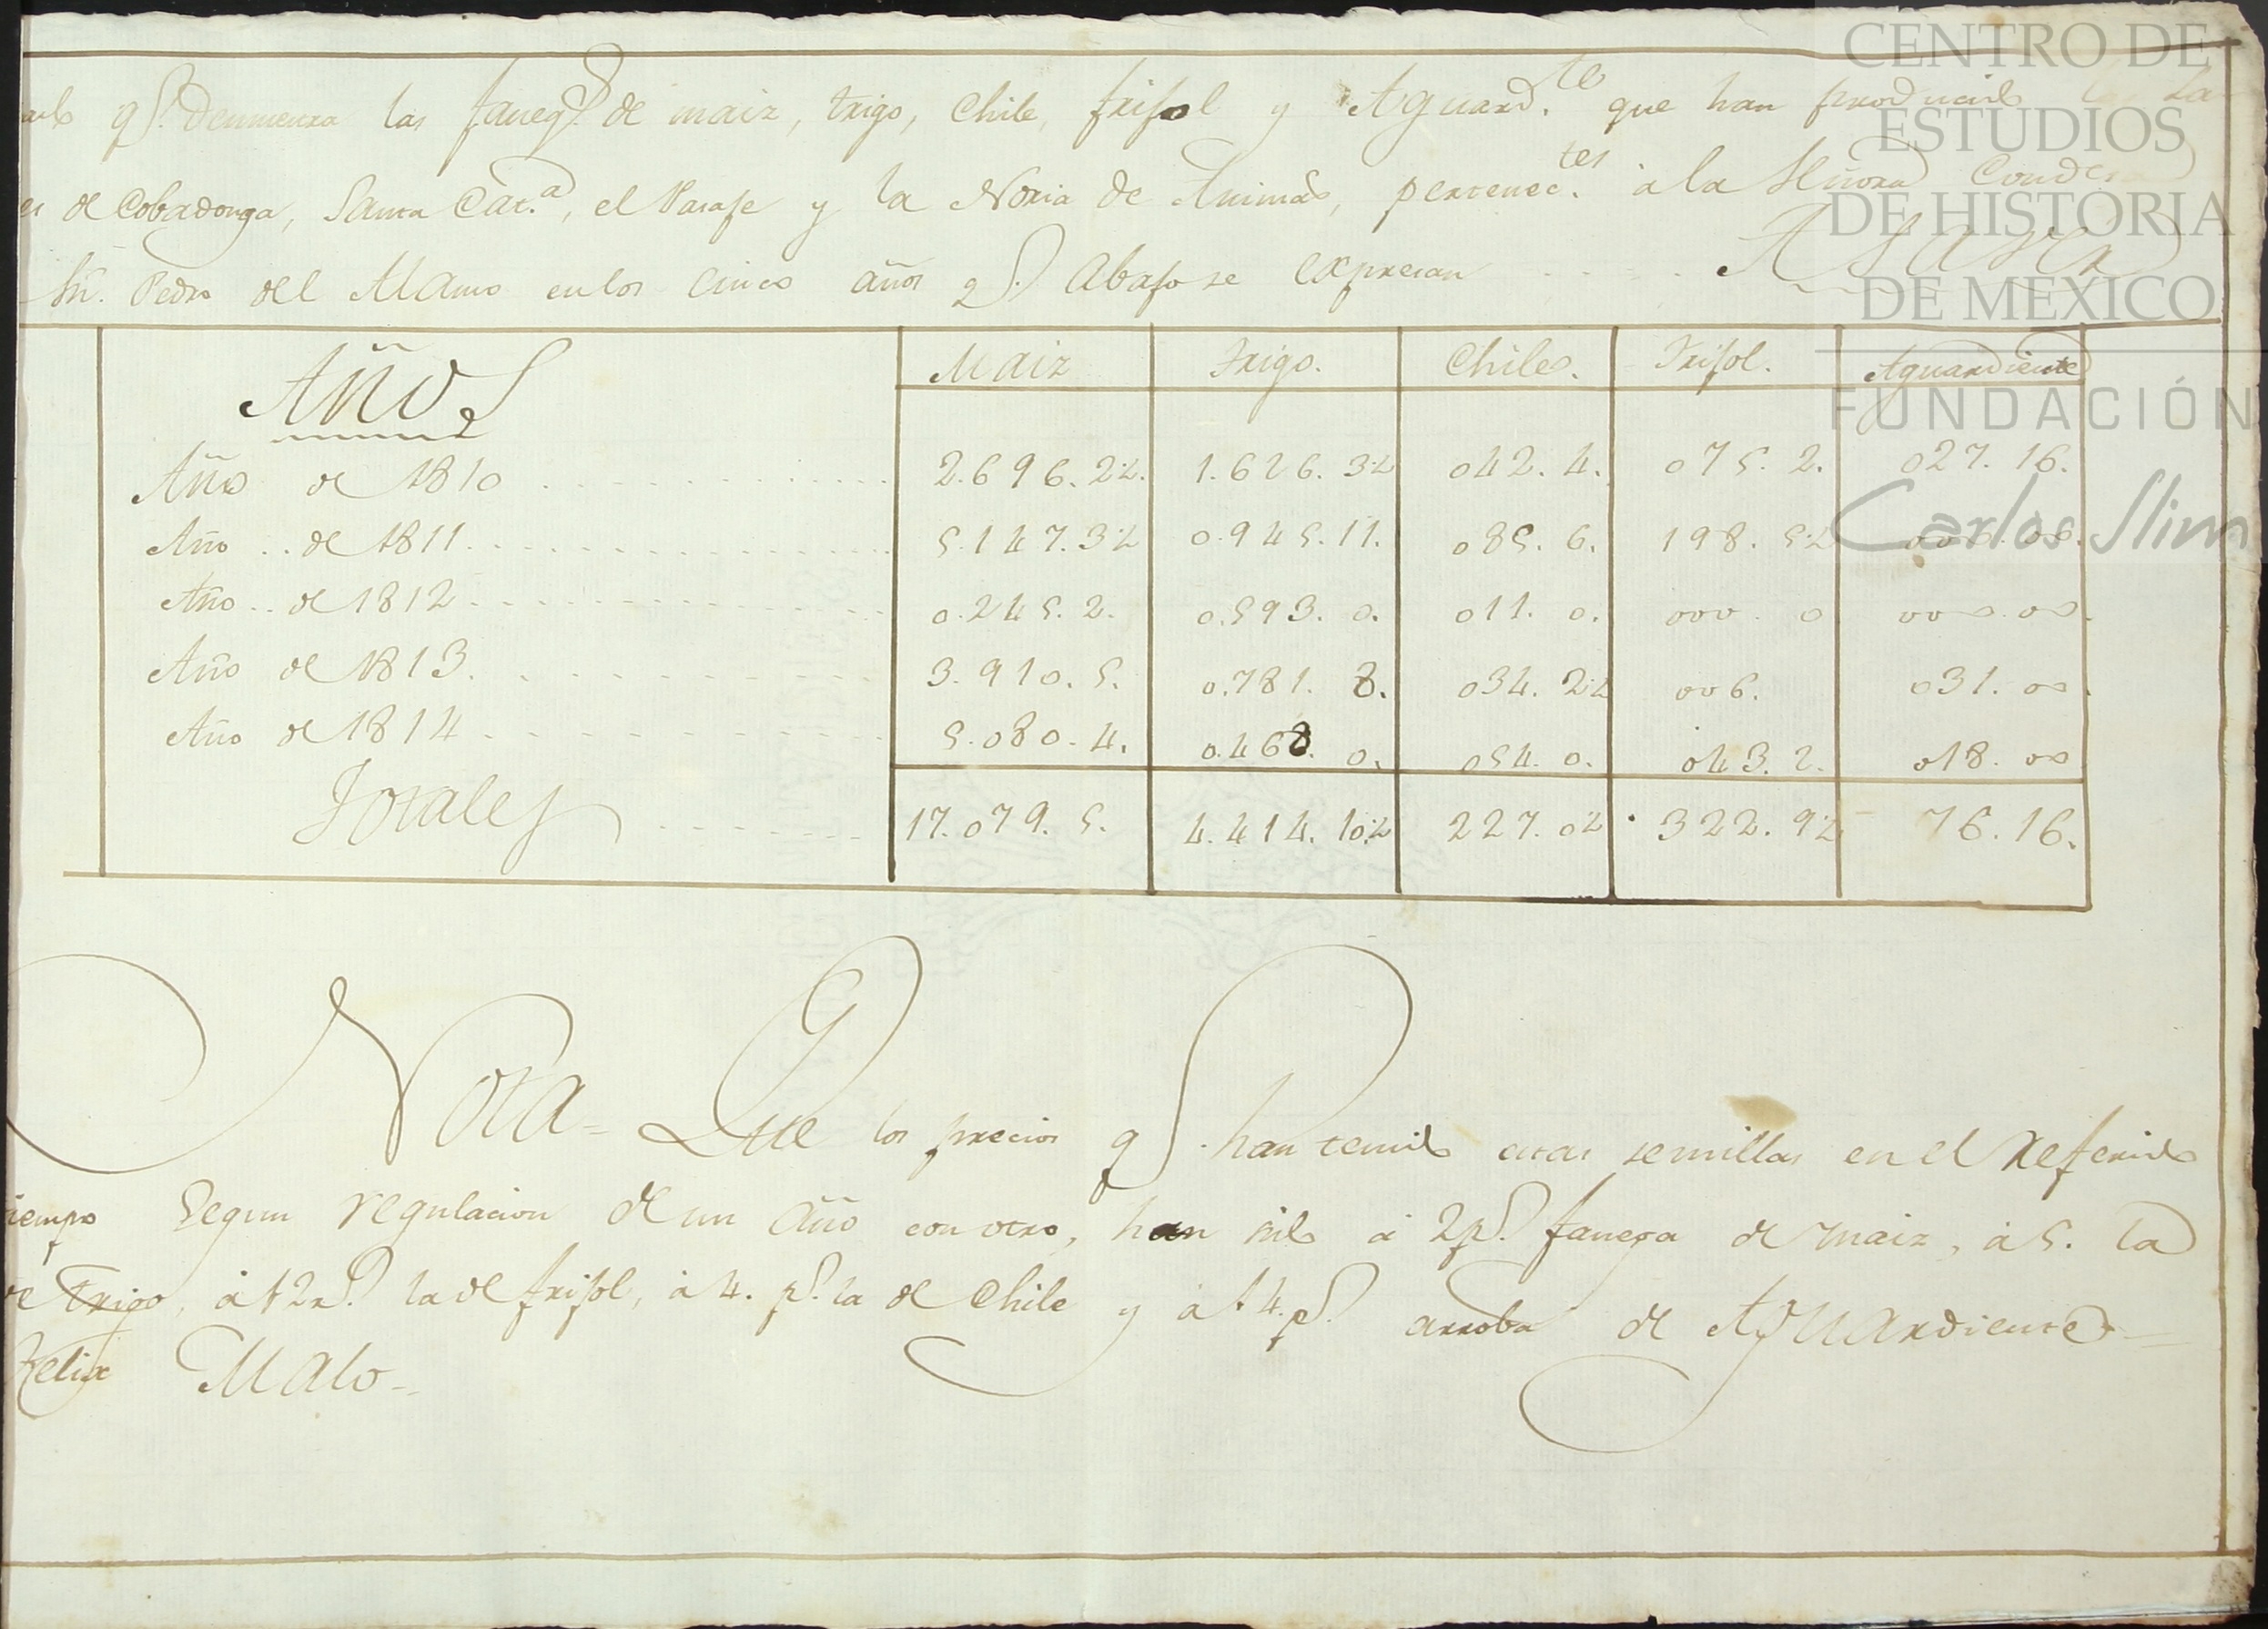 q.e Demuestra las faneg.s de maiz, trigo, Chile, frisol y Aguard.te que han producido
de Cobadonga, Santa Cat.a, el Pasage y la Noria de Animas, pertenec.tes à la Señora Condesa
Sn. Pedro del Alamo en los Cinco años q.e Abajo se expresan
Años Maiz Trigo. Chile. Frisol. Aguardiente
Año de 1810 2.696.2½. 1.626.3½ 042.4. 075.2. 027.16.
Año de 1811 5.147.3½ 0.945.11. 085.6. 198.5½ 000.00.
Año de 1812 0.245.2. 0.593.0. 011.0. 000.0 000.00.
Año de 1813. 3.910.5. 0.781.8. 034.2½ 006. 031.00.
Año de 1814 5.080.4. 0.468.0. 054.0. 043.2. 018.00
Totales 17.079.5. 4.414.10½ 227.0½ 322.9½ 76.16.
Nota = Que los precios q.e han tenido estas semillas en el referido
tiempo Segun regulacion de un año con otro, han sido à 2p.s fanega de maiz, à 5. la
de trigo, à 12r.s la de frisol, à 4. p.s la de Chile y à 14.p.s arroba de Aguardiente =
Felix Malo =
CENTRO DE
ESTUDIOS
DE HISTORIA
DE MEXICO
FUNDACIÓN
Carlos Slim